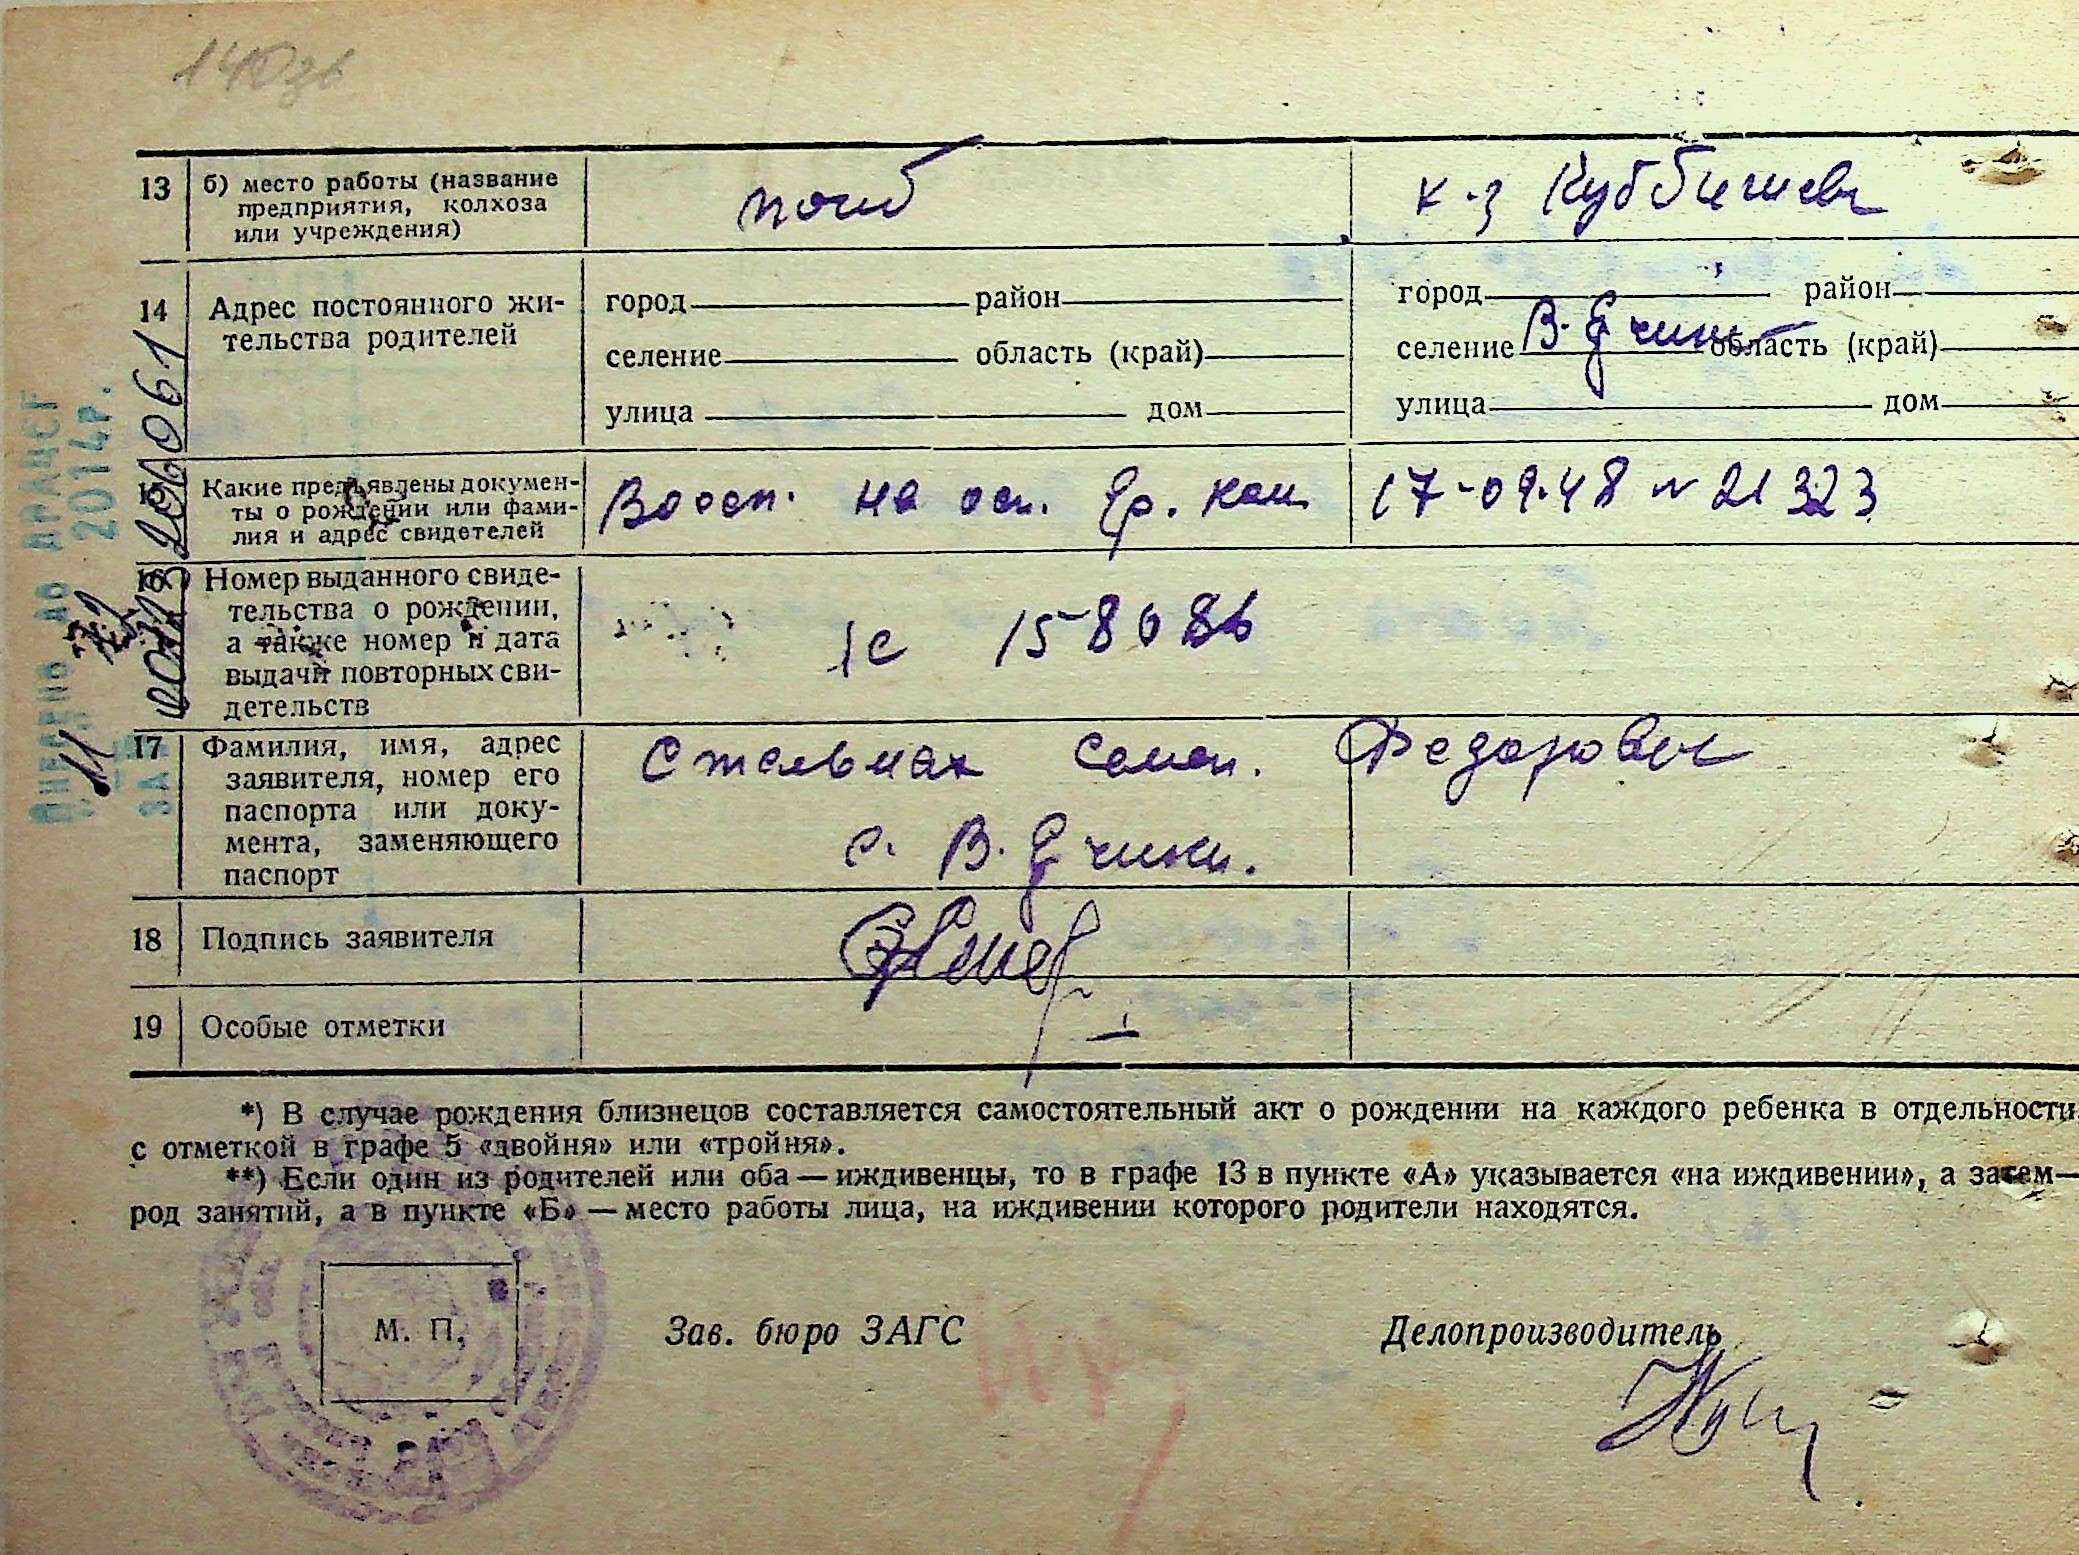 140зв
13 б) место работы (название
предприятия, колхоза
или учреждения)
погиб
к-з Куббишева
14 Адрес постоянного жи-
тельства родителей
город район
селение область (край)
улица дом
город район
селение В. область (край)
улица дом
15 Какие предъявлены докумен-
ты о рождении или фами-
лия и адрес свидетелей
Восст. на осн. 17-09.48 № 21323
16 Номер выданного свиде-
тельства о рождении,
а также номер и дата
выдачи повторных сви-
детельств
158086
17 Фамилия, имя, адрес
заявителя, номер его
паспорта или доку-
мента, заменяющего
паспорт
Стельмах Семен. Федорович
с. В.
18 Подпись заявителя
19 Особые отметки
*) В случае рождения близнецов составляется самостоятельный акт о рождении на каждого ребенка в отдельности
с отметкой в графе 5 «двойня» или «тройня».
**) Если один из родителей или оба — иждивенцы, то в графе 13 в пункте «А» указывается «на иждивении», а затем—
род занятий, а в пункте «Б» — место работы лица, на иждивении которого родители находятся.
М. П.
Зав. бюро ЗАГС
Делопроизводитель
ВНЕСЕНО ДО ДРАЦСГ
2014р.